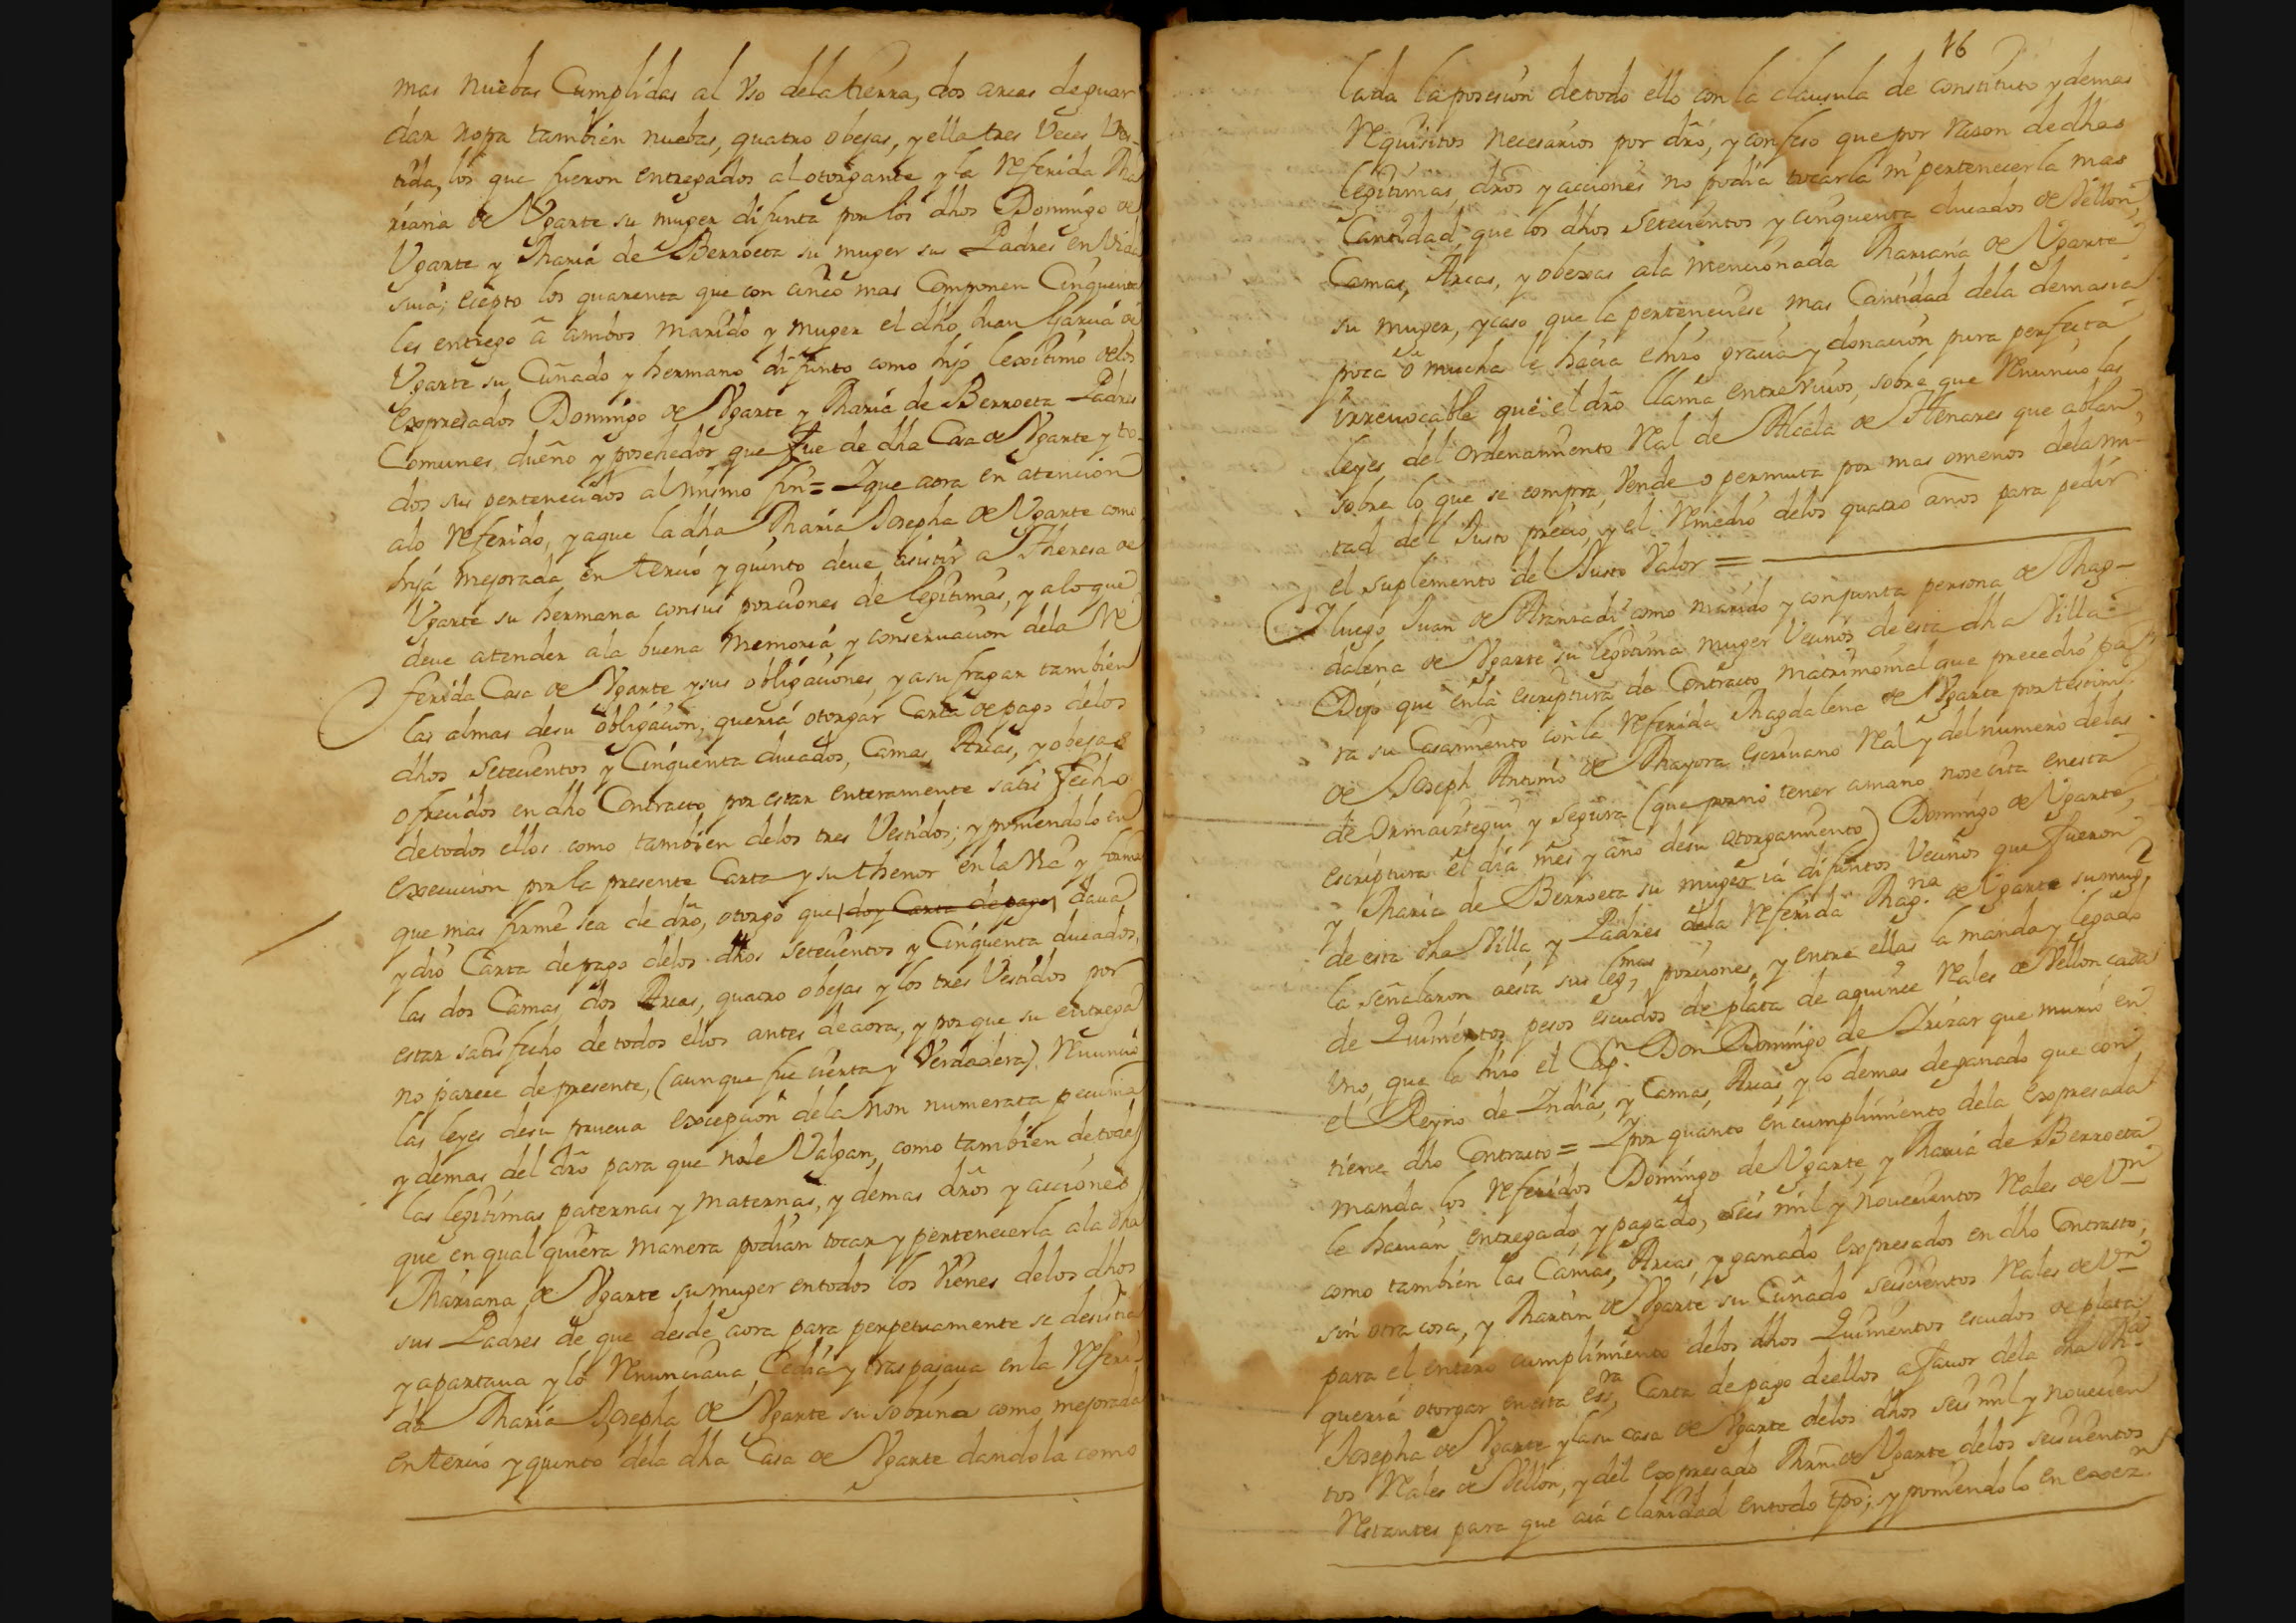 mas nuebas Cumplidas al Vso dela tierra, dos arcas de guar
dar ropa tambien nuebas, quatro obejas, y ella tres Veces Ves-
tida, los que fueron entregados al otorgante y la referida Ma
riana de Vgarte su muger difunta por los dhos Domingo de
Vgarte y Maria de Berroeta su muger sus Padres en Vida
suia; ecepto los quarenta que con cinco mas Componen Cinquenta
les entrego â ambos marido y muger el dho Juan Garcia de
Vgarte su Cuñado y hermano difunto como hijo lexitimo delos
expresados Domingo de Vgarte y Maria de Berroeta Padres
Comunes, dueño y posehedor que fue de dha Casa de Vgarte y to-
dos sus pertenecidos al mismo fin = Y que aora en atencion
alo referido, y aque la dha Maria Josepha de Vgarte como
hija mejorada en tercio y quinto deve asistir a Theresa de
Vgarte su hermana consus porciones de legitimas, y alo que
deve atender ala buena memoria, y conseruacion dela Re
ferida Casa de Vgarte y sus obligaciones, y asu fragar tambien
las almas desu obligacion; queria otorgar Carta de pago delos
dhos setecientos y Cinquenta ducados, Camas, Arcas, y obejas
ofrecidos en dho Contracto por estar enteramente satisfecho
de todos ellos como tambien delos tres Vestidos; y poniendolo en
execucion por la presente Carta y su thenor en la Via y forma
que mas firme sea de dro, otorgo que doy Carta de pago daua
y dio Carta de pago delos dhos setecientos y Cinquenta ducados,
las dos Camas, dos Arcas, quatro obejas y los tres Vestidos por
estar satisfecho de todos ellos antes de aora, y porque su entrega
no parece de presente, (aunque fue cierta y Verdadera) Renuncio
las leyes desu prueua excepcion dela non numerata pecunia
y demas del dro para que nole Valgan, como tambien de todas
las legitimas paternas y maternas, y demas dros y acciones
que en qual quiera manera podian tocar y pertenecerla ala dha
Mariana de Vgarte su muger en todos los Vienes delos dhos
sus Padres de que desde aora para perpetuamente se desistia
y apartaua y lo Renunciaua, Cedia y traspasaua en la Referi-
da Maria Josepha de Vgarte su sobrina como mejorada
en tercio y quinto dela dha Casa de Vgarte dandola como
16
lada la posesion de todo ello con la clausula de constituto y demas
Requisitos necesarios por dro, y confeso que por Rason de dhas
legitimas, dros y acciones no podia tocarla ni pertenecerla mas
Cantidad que los dhos setecientos y cinquenta ducados de Vellon,
Camas, Arcas, y obexas ala mencionada Mariana de Vgarte
su muger, y caso que la perteneciese mas Cantidad dela demasia
poca ô mucha le hacia e hizo gracia y donacion pura perfecta
irreuocable que el dro llama entre viuos, sobre que Renuncio las
leyes del ordenamiento Real de Alcala de Henares que ablan
sobre lo que se compra, Vende o permuta por mas omenos dela mi-
tad del Justo precio, y el Remedio delos quatro años para pedir
el suplemento del Justo Valor =
Y luego Juan de Aranzadi como marido y conjunta persona de Mag-
dalena de Vgarte su legitima muger Vecinos de esta dha Villa =
Dijo que en la escriptura de Contracto matrimonial que precedio pa
ra su Casamiento con la referida Magdalena de Vgarte por testimo
de Joseph Antonio de Mayora escriuano Real y del numero delas
de Ormaiztegui y Segura (que por no tener amano nose cita enesta
escriptura el dia mes y año desu otorgamiento) Domingo de Vgarte,
y Maria de Berroeta su muger ia difuntos Vecinos que fueron
de esta dha Villa, y Padres dela referida Mag.na de Vgarte su mug.r
la señalaron aesta sus leg.mas porciones, y entre ellas la manda y legado
de Quinientos pesos escudos de plata de aquince Reales de Vellon cada
vno, que la hizo el Cap.n Don Domingo de Irizar que murio en
el Reyno de Indias, y Camas, Arcas, y lo demas de ganado que con
tiene dho Contracto = Y por quanto en cumplimiento dela expresada
manda los referidos Domingo de Vgarte, y Maria de Berroeta
le hauian entregado, y pagado, seis mil y nouecientos Reales de V.n
como tambien las Camas, Arcas, y ganado expresados en dho Contracto,
sin otra cosa, y Martin de Vgarte su Cuñado seiscientos Reales de V.n
para el entero cumplimiento delos dhos Quinientos escudos de plata;
queria otorgar enesta ess.ra Carta de pago de ellos a fauor dela dha M.a
Josepha de Vgarte y la su casa de Vgarte delos dhos seis mil y nouecien
tos Reales de Vellon, y del expresado Mrn de Vgarte delos seiscientos
Restantes para que aia claridad entodo tpo; y poniendolo en exec.n